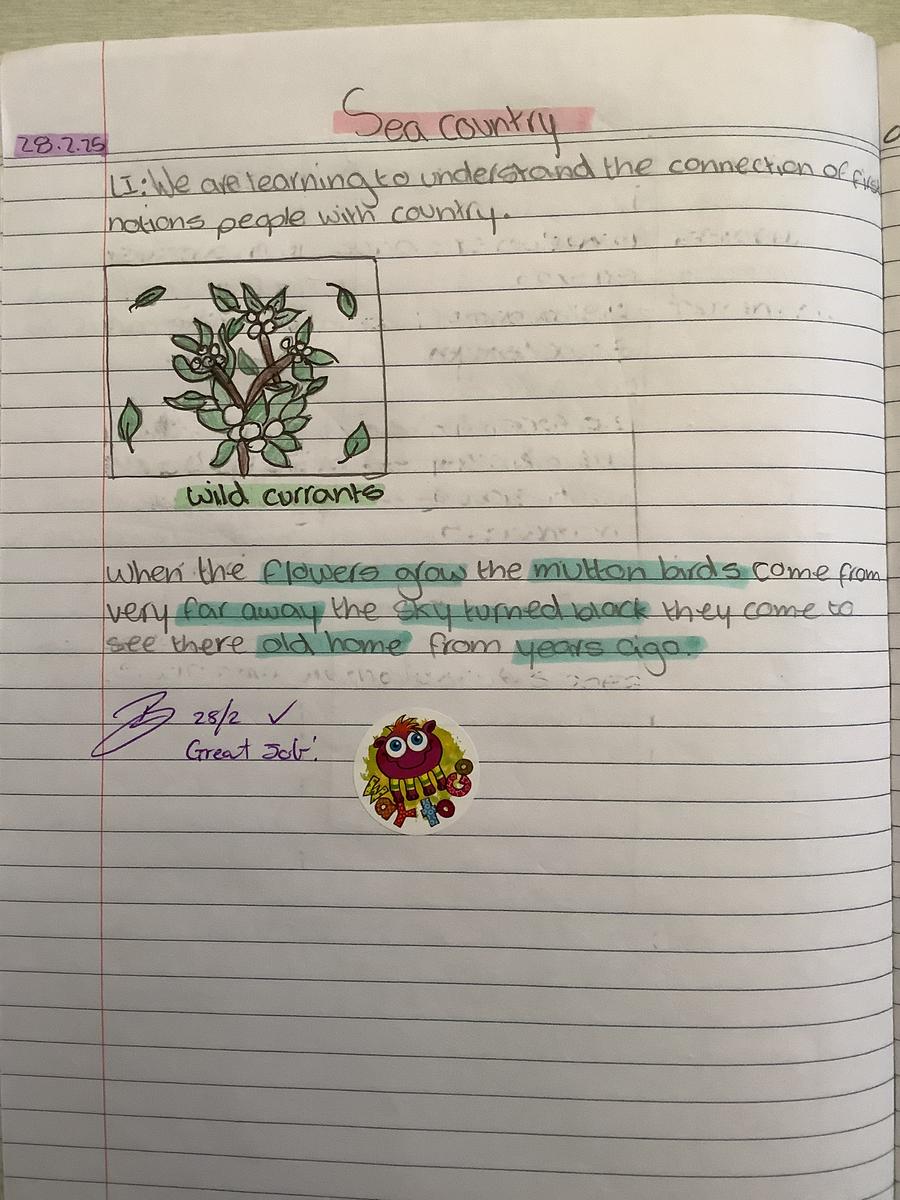 Sea country
28.2.25
LI: We are learning to understand the connection of first
nations people with country.
wild currants
When the flowers grow the mutton birds come from
very far away the sky turned black they come to
see there old home from years ago.
28/2 ✓
Great Job!
Way to Go